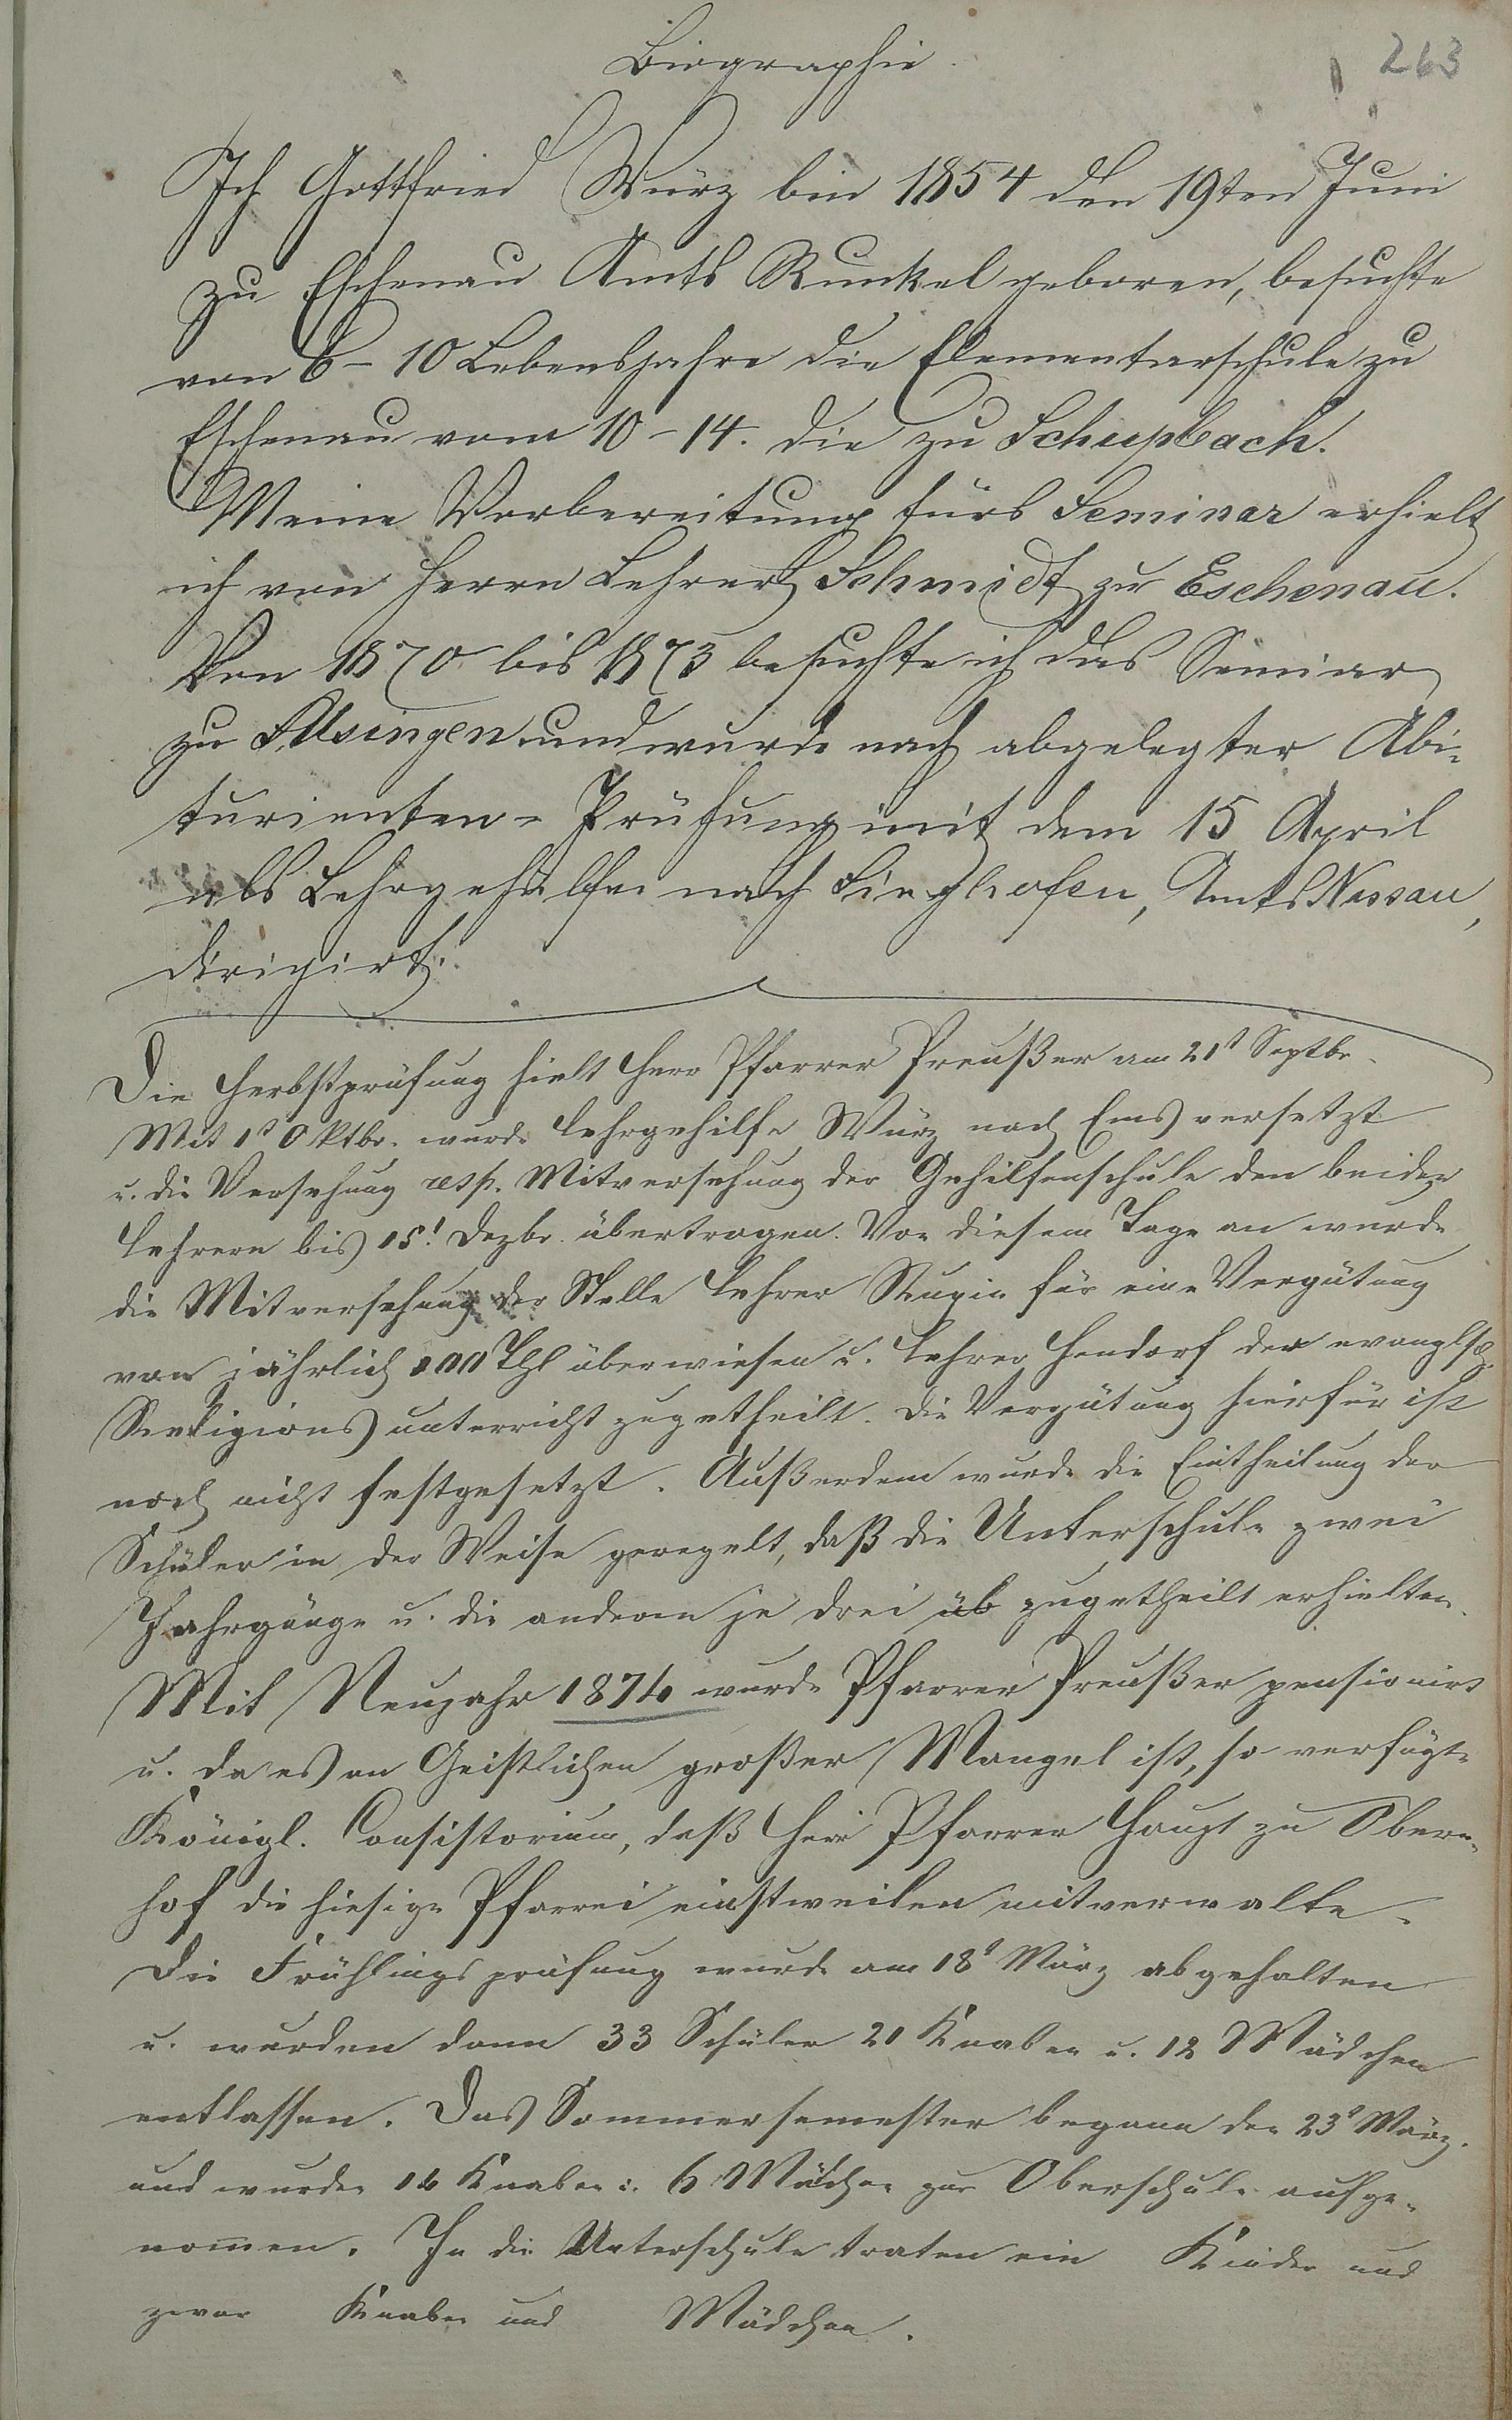 Biographie.
263
Ich Gottfried Würz bin 1854 den 19ten Juni
zu Eschenau Amts Runkel geboren, besuchte
von 6-10 Lebensjahre die Elementarschule zu
Eschenau vom 10-14. die zu Schupbach.
Meine Vorbereitung fürs Seminar erhielt
ich von Herrn Lehrer Schmidt zu Eschenau.
Von 1870 bis 1873 besuchte ich das Seminar
zu Usingen und wurde nach abgelegter Abi-
turienten-Prüfung mit dem 15 April
als Lehrgehülfe nach Singhofen, Amts Nassau,
dirigirt.
Die Herbstprüfung hielt Herr Pfarrer Preußer am 21t Septbr.
Mit 1t Oktbr. wurde Lehrgehilfe Würz nach Ems versetzt
u. die Versehung resp. Mitversehung der Gehilfenschule den beiden
Lehrern bis 15t Dezbr. übertragen. Von diesem Tage an wurde
die Mitversehung der Stelle Lehrer für eine Vergütung
von jährlich 100 Thl überwiesen u. Lehrer Hendorf der evanglsch.
Religionsunterricht zugetheilt. Die Vergütung hierfür ist
noch nicht festgesetzt. Außerdem wurde die Eintheilung der
Schüler in der Weise geregelt, daß die Unterschule zwei
Jahrgänge u. die andern je drei üb zugetheilt erhielten.
Mit Neujahr 1874 wurde Pfarrer Preußer pensionirt
u. da es an Geistlichen großer Mangel ist, so verfügte
Königl. Consistorium, daß Herr Pfarrer Haupt zu Obern-
hof die hiesige Pfarrei einstweilen mitverwalte.
Die Frühlingsprüfung wurde am 18t März abgehalten
u. wurden dann 33 Schüler 21 Knaben u. 12 Mädchen
entlassen. Das Sommersemester begann den 23t März.
und wurden 14 Knaben u. 6 Mädchen zur Oberschule aufge-
nommen. In die Unterschule traten ein Kinder und
zwar Knaben und Mädchen.